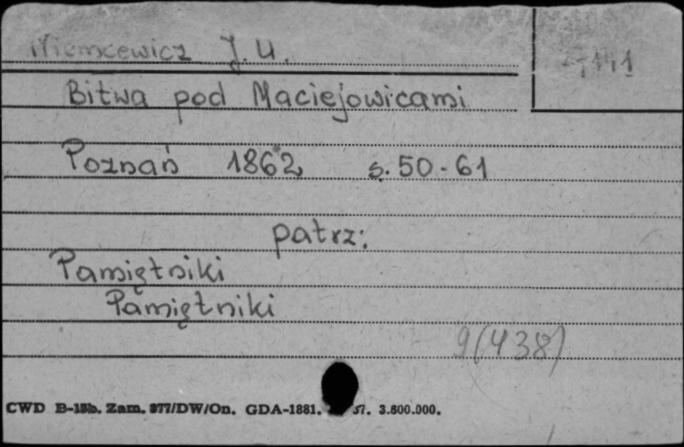 Niemcewicz J. U.
Bitwa pod Maciejowicami
Poznań 1862 s. 50-61
patrz:
Pamiętniki
Pamiętniki
9(438)
CWD B-15b. Zam. 377/DW/On. GDA-1881. 57. 3.600.000.